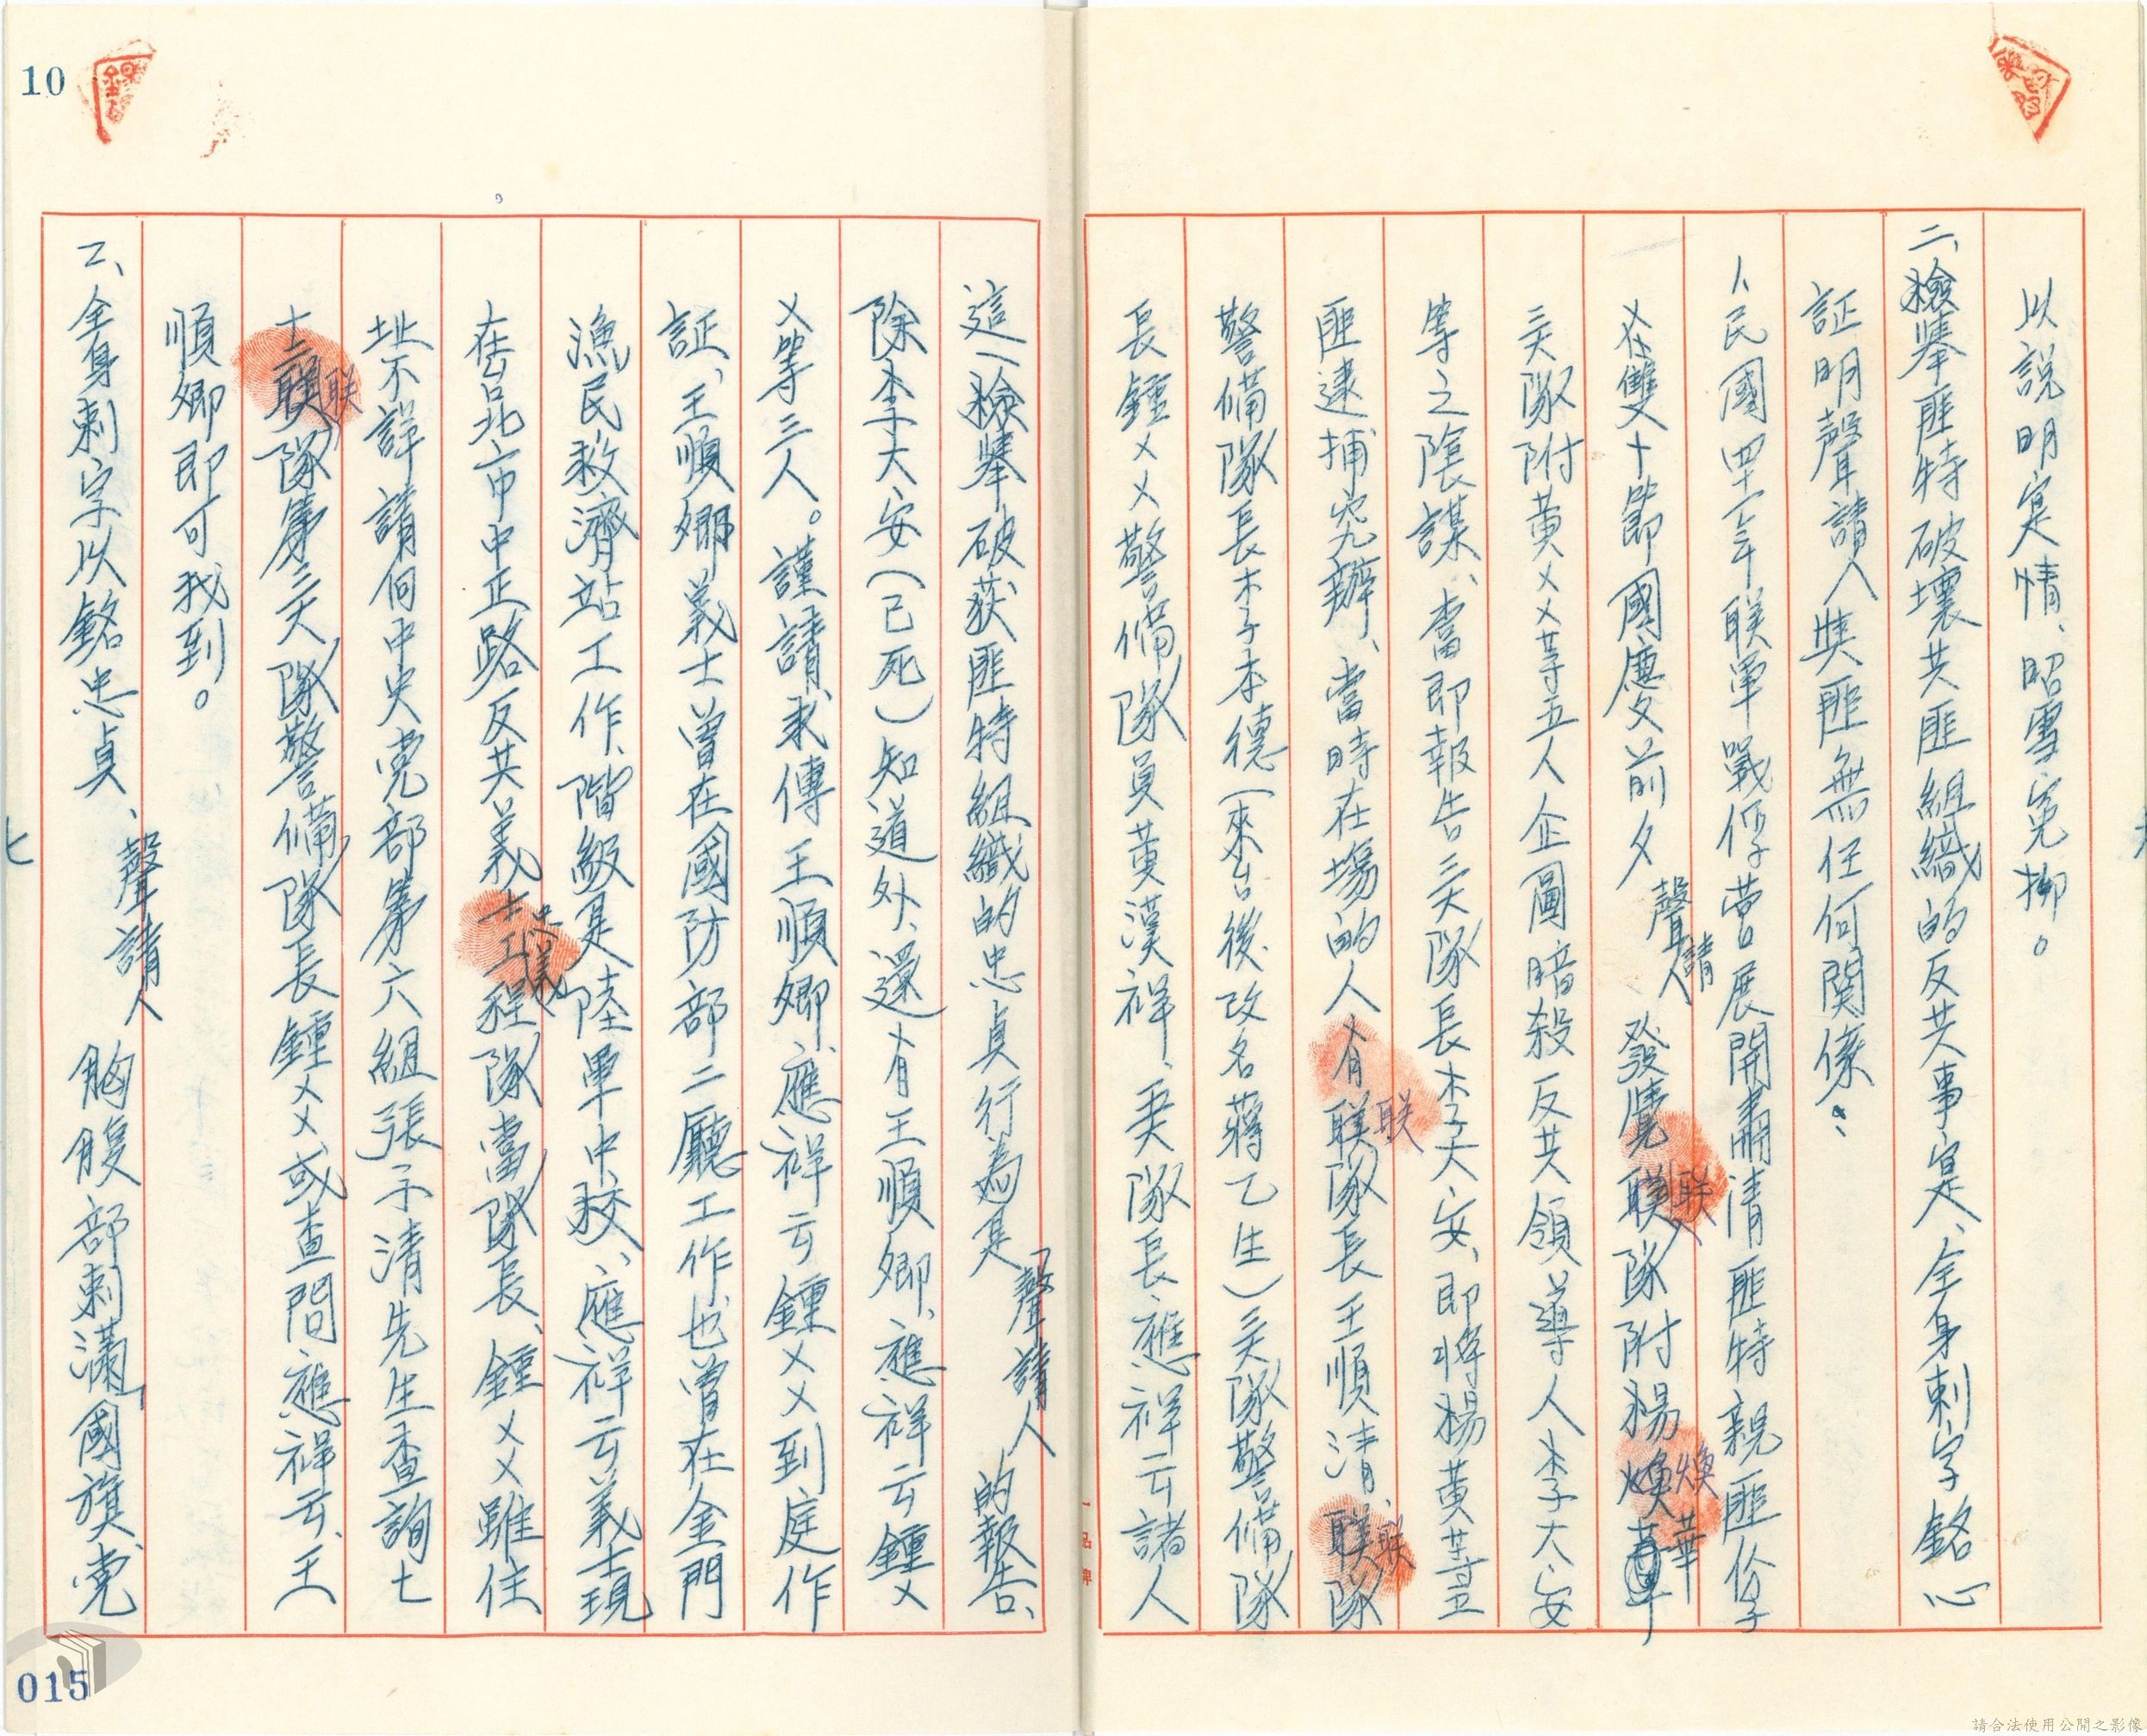 以說明寔情、昭雪冤抑。
二、檢舉匪特破壞共匪組織的反共事寔、全身刺字銘心
証明聲請人與匪無任何関係：
1、民國四十一年联軍戰俘營展開肅清匪特親匪份子
又在雙十節國慶前夕聲請人發覺联隊附楊煥華
三大隊附黃××等五人企圖暗殺反共領導人李大安
等之陰謀、當即報告三大隊長李大安、即將楊黃等五
匪逮捕究辦、當時在場的人有联隊長王順清、联隊
警備隊長李本德（來台後改名蔣乙生）三大隊警備隊
長鍾××警備隊員黃漢祥、隊長應祥云諸人
這一檢舉破获匪特組織的忠貞行為是聲請人的報告、
除李大安（已死）知道外、還有王順卿、應祥云鍾×
×等三人。謹請求傳王順卿應祥云鍾××到庭作
証、王順卿義士曾在國防部二廳工作也曾在金門
漁民救濟站工作、階級是陸軍中校、應祥云義士現
在台北市中正路反共義士工程隊當隊長、鍾××雖住
址不詳請向中央党部第六組張子清先生查詢七
十三联隊第三大隊警備隊長鍾××或查問應祥云、王
順卿即可找到。
2、全身刺字以銘忠貞、聲請人胸腹部刺滿國旗党
七
10
015
請合法使用公開之影像